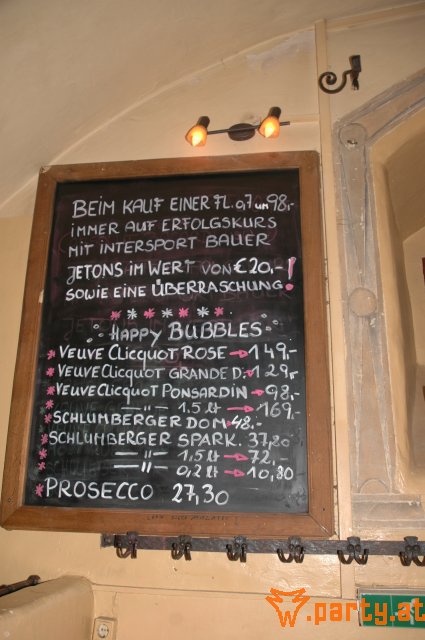 BEIM KAUF EINER FL. 0,7 UM 98,-
IMMER AUF ERFOLGSKURS
MIT INTERSPORT BAUER
JETONS IM WERT VON €20,-!
SOWIE EINE ÜBERRASCHUNG!
HAPPY BUBBLES
VEUVE CLICQUOT ROSE → 149,-
VEUVE CLICQUOT GRANDE D. → 129,-
VEUVE CLICQUOT PONSARDIN → 98,-
—"— 1.5 lt → 169,-
SCHLUMBERGER DOM → 48,-
SCHLUMBERGER SPARK. 37,80
—"— 1,5 lt → 72,-
—"— 0,2 lt → 10,80
PROSECCO 27,30
.party.at